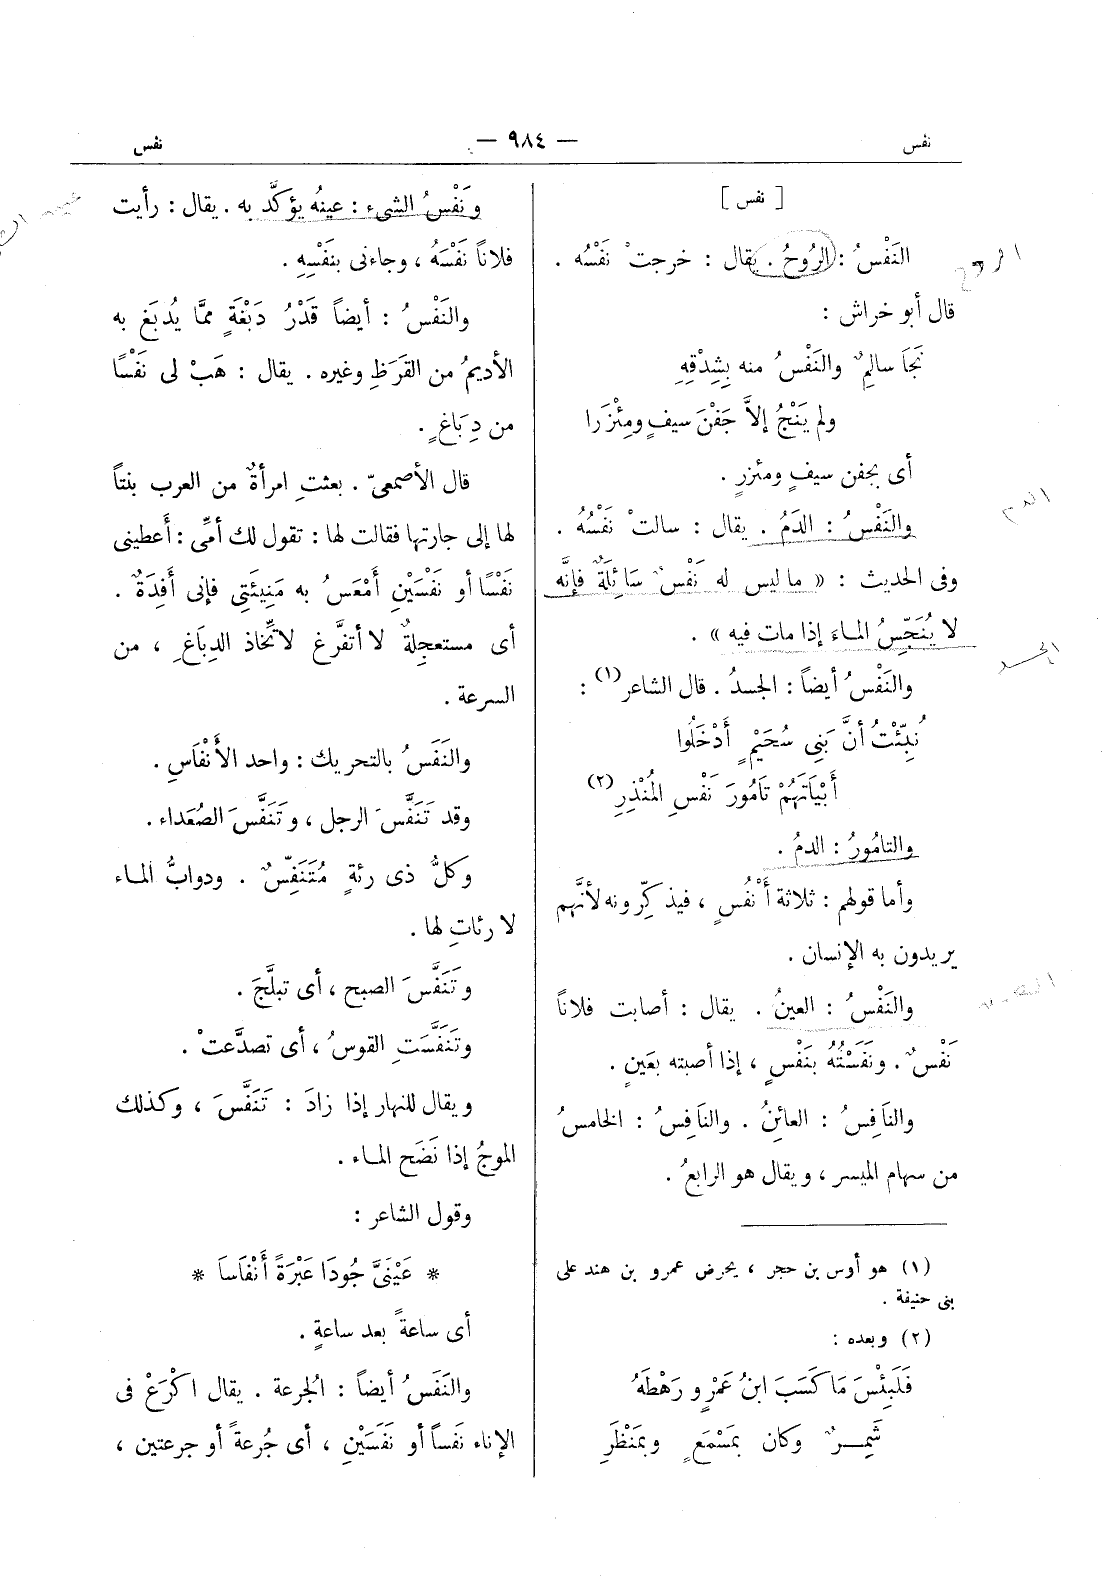 نفس
— ٩٨٤ —
نفس
[ نفس ]
النَفْسُ : الرُوحُ . يقال : خرجتْ نَفْسُه .
قال أبو خراش :
نَجَا سالِمٌ والنَفْسُ منه بِشِدْقِهِ
ولم يَنْجُ إلاَّ جَفْنَ سيفٍ ومِئْزَرا
أى بجفن سيفٍ ومئزرٍ .
والنَفْسُ : الدَمُ . يقال : سالتْ نَفْسُهُ .
وفى الحديث : « ما ليس له نَفْسٌ سَائِلَةٌ فإنَّه
لا يُنَجِّسُ الماءَ إذا مات فيه » .
والنَفْسُ أيضاً : الجسدُ . قال الشاعر (١) :
نُبِّئْتُ أنَّ بَنِى سُحَيْمٍ أَدْخَلُوا
أَبْيَاتَهُمْ تَامُورَ نَفْسِ المُنْذِرِ (٢)
والتامُورُ : الدمُ .
وأما قولهم : ثلاثة أَنْفُسٍ ، فيذكِّرونه لأنَّهم
يريدون به الإنسان .
والنَفْسُ : العينُ . يقال : أصابت فلاناً
نَفْسٌ . ونَفَسْتُهُ بنَفْسٍ ، إذا أصبته بعَينٍ .
والنَافِسُ : العائِنُ . والنَافِسُ : الخامسُ
من سهام الميسر ، ويقال هو الرابعُ .
(١) هو أوس بن حجر ، يحرض عمرو بن هند على
بنى حنيفة .
(٢) وبعده :
فَلَبِئْسَ مَا كَسَبَ ابنُ عَمْرٍو رَهْطَهُ
شَمِــرٌ وكان بمَسْمَعٍ وبمَنْظَرِ
ونَفْسُ الشىء : عينُه يؤكَّد به . يقال : رأيت
فلاناً نَفْسَهُ ، وجاءنى بنَفْسِهِ .
والنَفْسُ : أيضاً قَدْرُ دَبْغَةٍ ممَّا يُدبَغ به
الأديمُ من القَرَظِ وغيره . يقال : هَبْ لى نَفْسًا
من دِبَاغٍ .
قال الأصمعىّ . بعثتِ امرأةٌ من العرب بنتاً
لها إلى جارتها فقالت لها : تقول لك أمِّى : أَعطينى
نَفْسًا أو نَفْسَيْنِ أَمْعَسُ به مَنِيئَتِى فإنى أَفِدَةٌ .
أى مستعجِلةٌ لا أتفرَّغ لاتِّخاذ الدِبَاغِ ، من
السرعة .
والنَفَسُ بالتحريك : واحد الأَنْفَاسِ .
وقد تَنَفَّسَ الرجل ، وتَنَفَّسَ الصُعَداء .
وكلُّ ذى رئةٍ مُتَنَفِّسٌ . ودوابُّ الماء
لا رئاتِ لها .
وتَنَفَّسَ الصبح ، أى تبلَّجَ .
وتَنَفَّسَتِ القوسُ ، أى تصدَّعتْ .
ويقال للنهار إذا زادَ : تَنَفَّسَ ، وكذلك
الموجُ إذا نَضَح الماء .
وقول الشاعر :
* عَيْنَىَّ جُودَا عَبْرَةً أَنْفَاسَا *
أى ساعةً بعد ساعةٍ .
والنَفَسُ أيضاً : الجُرعة . يقال اكْرَعْ فى
الإناء نَفَساً أو نَفَسَيْنِ ، أى جُرعةً أو جرعتين ،
الروح
الدم
الجسد